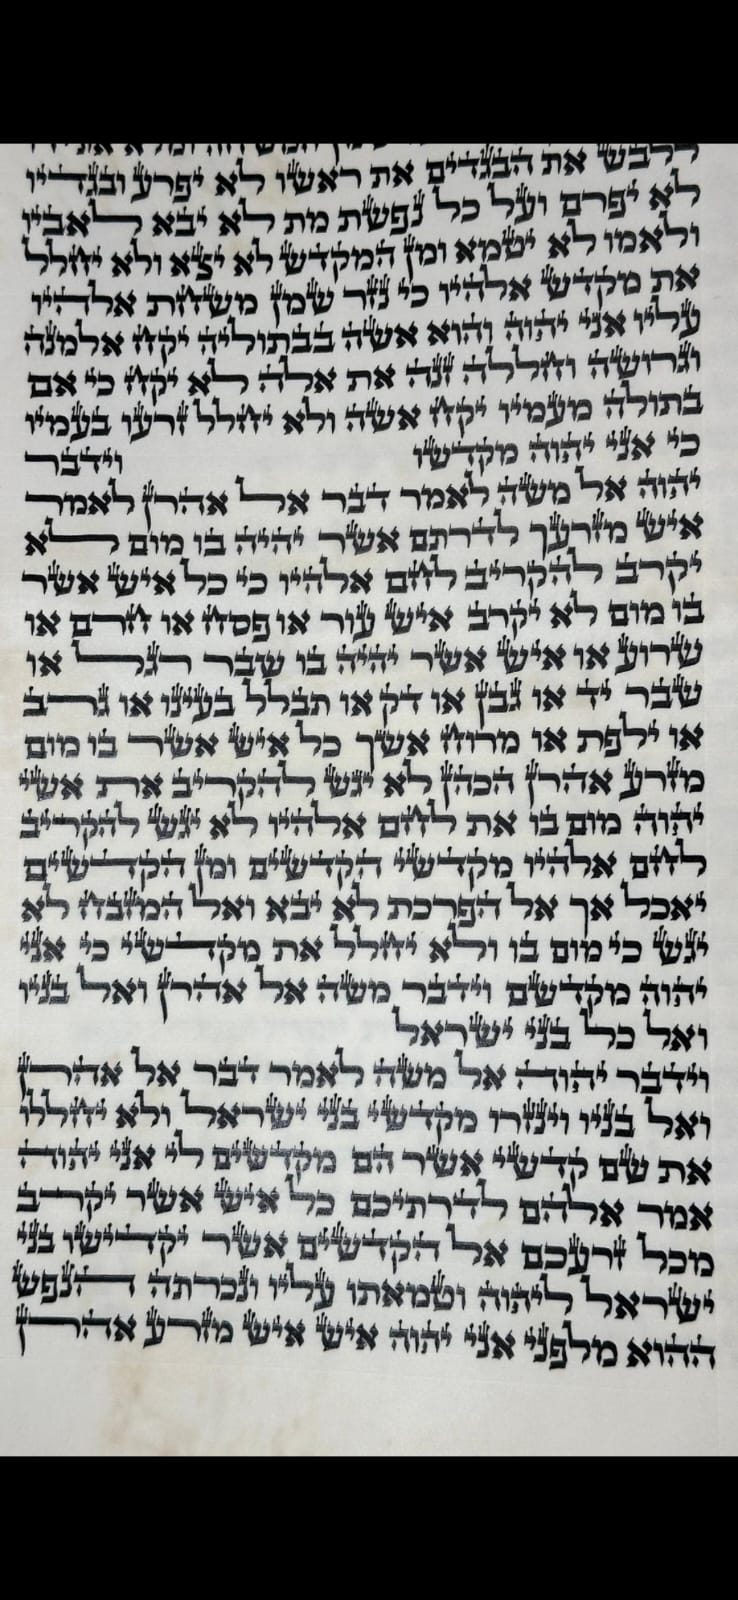 ללבש את הבגדים את ראשו לא יפרע ובגדיו
לא יפרם ועל כל נפשת מת לא יבא לאביו
ולאמו לא יטמא ומן המקדש לא יצא ולא יחלל
את מקדש אלהיו כי נזר שמן משחת אלהיו
עליו אני יהוה והוא אשה בבתוליה יקח אלמנה
וגרושה וחללה זנה את אלה לא יקח כי אם
בתולה מעמיו יקח אשה ולא יחלל זרעו בעמיו
כי אני יהוה מקדשו וידבר
יהוה אל משה לאמר דבר אל אהרן לאמר
איש מזרעך לדרתם אשר יהיה בו מום לא
יקרב להקריב לחם אלהיו כי כל איש אשר
בו מום לא יקרב איש עור או פסח או חרם או
שרוע או איש אשר יהיה בו שבר רגל או
שבר יד או גבן או דק או תבלל בעינו או גרב
או ילפת או מרוח אשך כל איש אשר בו מום
מזרע אהרן הכהן לא יגש להקריב את אשי
יהוה מום בו את לחם אלהיו לא יגש להקריב
לחם אלהיו מקדשי הקדשים ומן הקדשים
יאכל אך אל הפרכת לא יבא ואל המזבח לא
יגש כי מום בו ולא יחלל את מקדשי כי אני
יהוה מקדשם וידבר משה אל אהרן ואל בניו
ואל כל בני ישראל
וידבר יהוה אל משה לאמר דבר אל אהרן
ואל בניו וינזרו מקדשי בני ישראל ולא יחללו
את שם קדשי אשר הם מקדשים לי אני יהוה
אמר אלהם לדרתיכם כל איש אשר יקרב
מכל זרעכם אל הקדשים אשר יקדישו בני
ישראל ליהוה וטמאתו עליו ונכרתה הנפש
ההוא מלפני אני יהוה איש איש מזרע אהרן